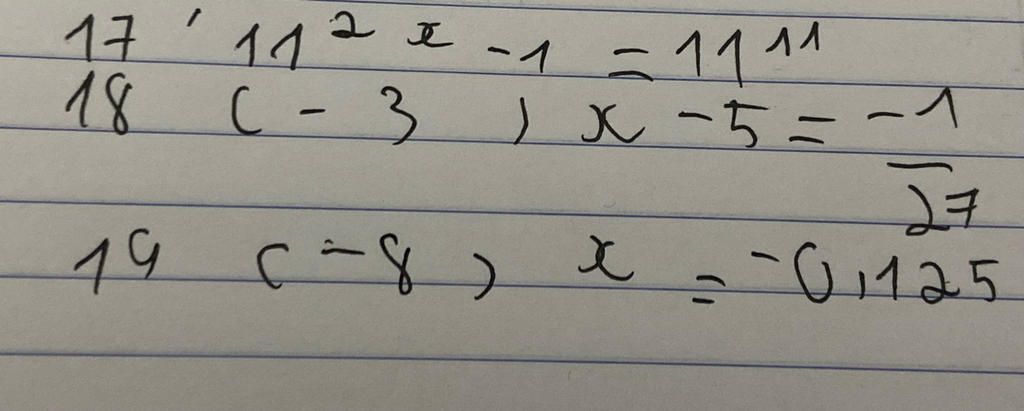 17 ' 11² x - 1 = 11¹¹
18 ( - 3 ) x - 5 = -1
27
19 ( - 8 ) x = -0,125